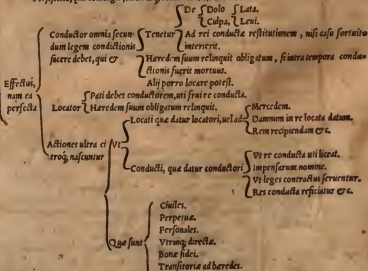 De Dolo Lata.
Culpa, Leui.
Conductor omnis secun-
dum legem condictionis
facere debet, qui &
Tenetur
Ad rei conductæ restitutionem, nisi casu fortuito
interierit.
Hæredem suum relinquit obligatum, si intra tempora condu-
ctionis fuerit mortuus.
Alij porro locare potest.
Effectui,
nam ea
perfecta
Locator
Pati debet conductorem, uti frui re conducta.
Hæredem suum obligatum relinquit.
Actiones ultra ci
troq; nascuntur
Vt
Locati quæ datur locatori, uel ad
Mercedem.
Damnum in re locata datum.
Rem recipiendam &c.
Conducti, quæ datur conductori
Vt re conducta uti liceat.
Impensarum nomine.
Vt leges contractus seruentur.
Res conducta reficiatur &c.
Quæ sunt
Ciuiles.
Perpetuæ.
Personales.
Vtrinq; directæ.
Bonæ fidei.
Transitoriæ ad hæredes.